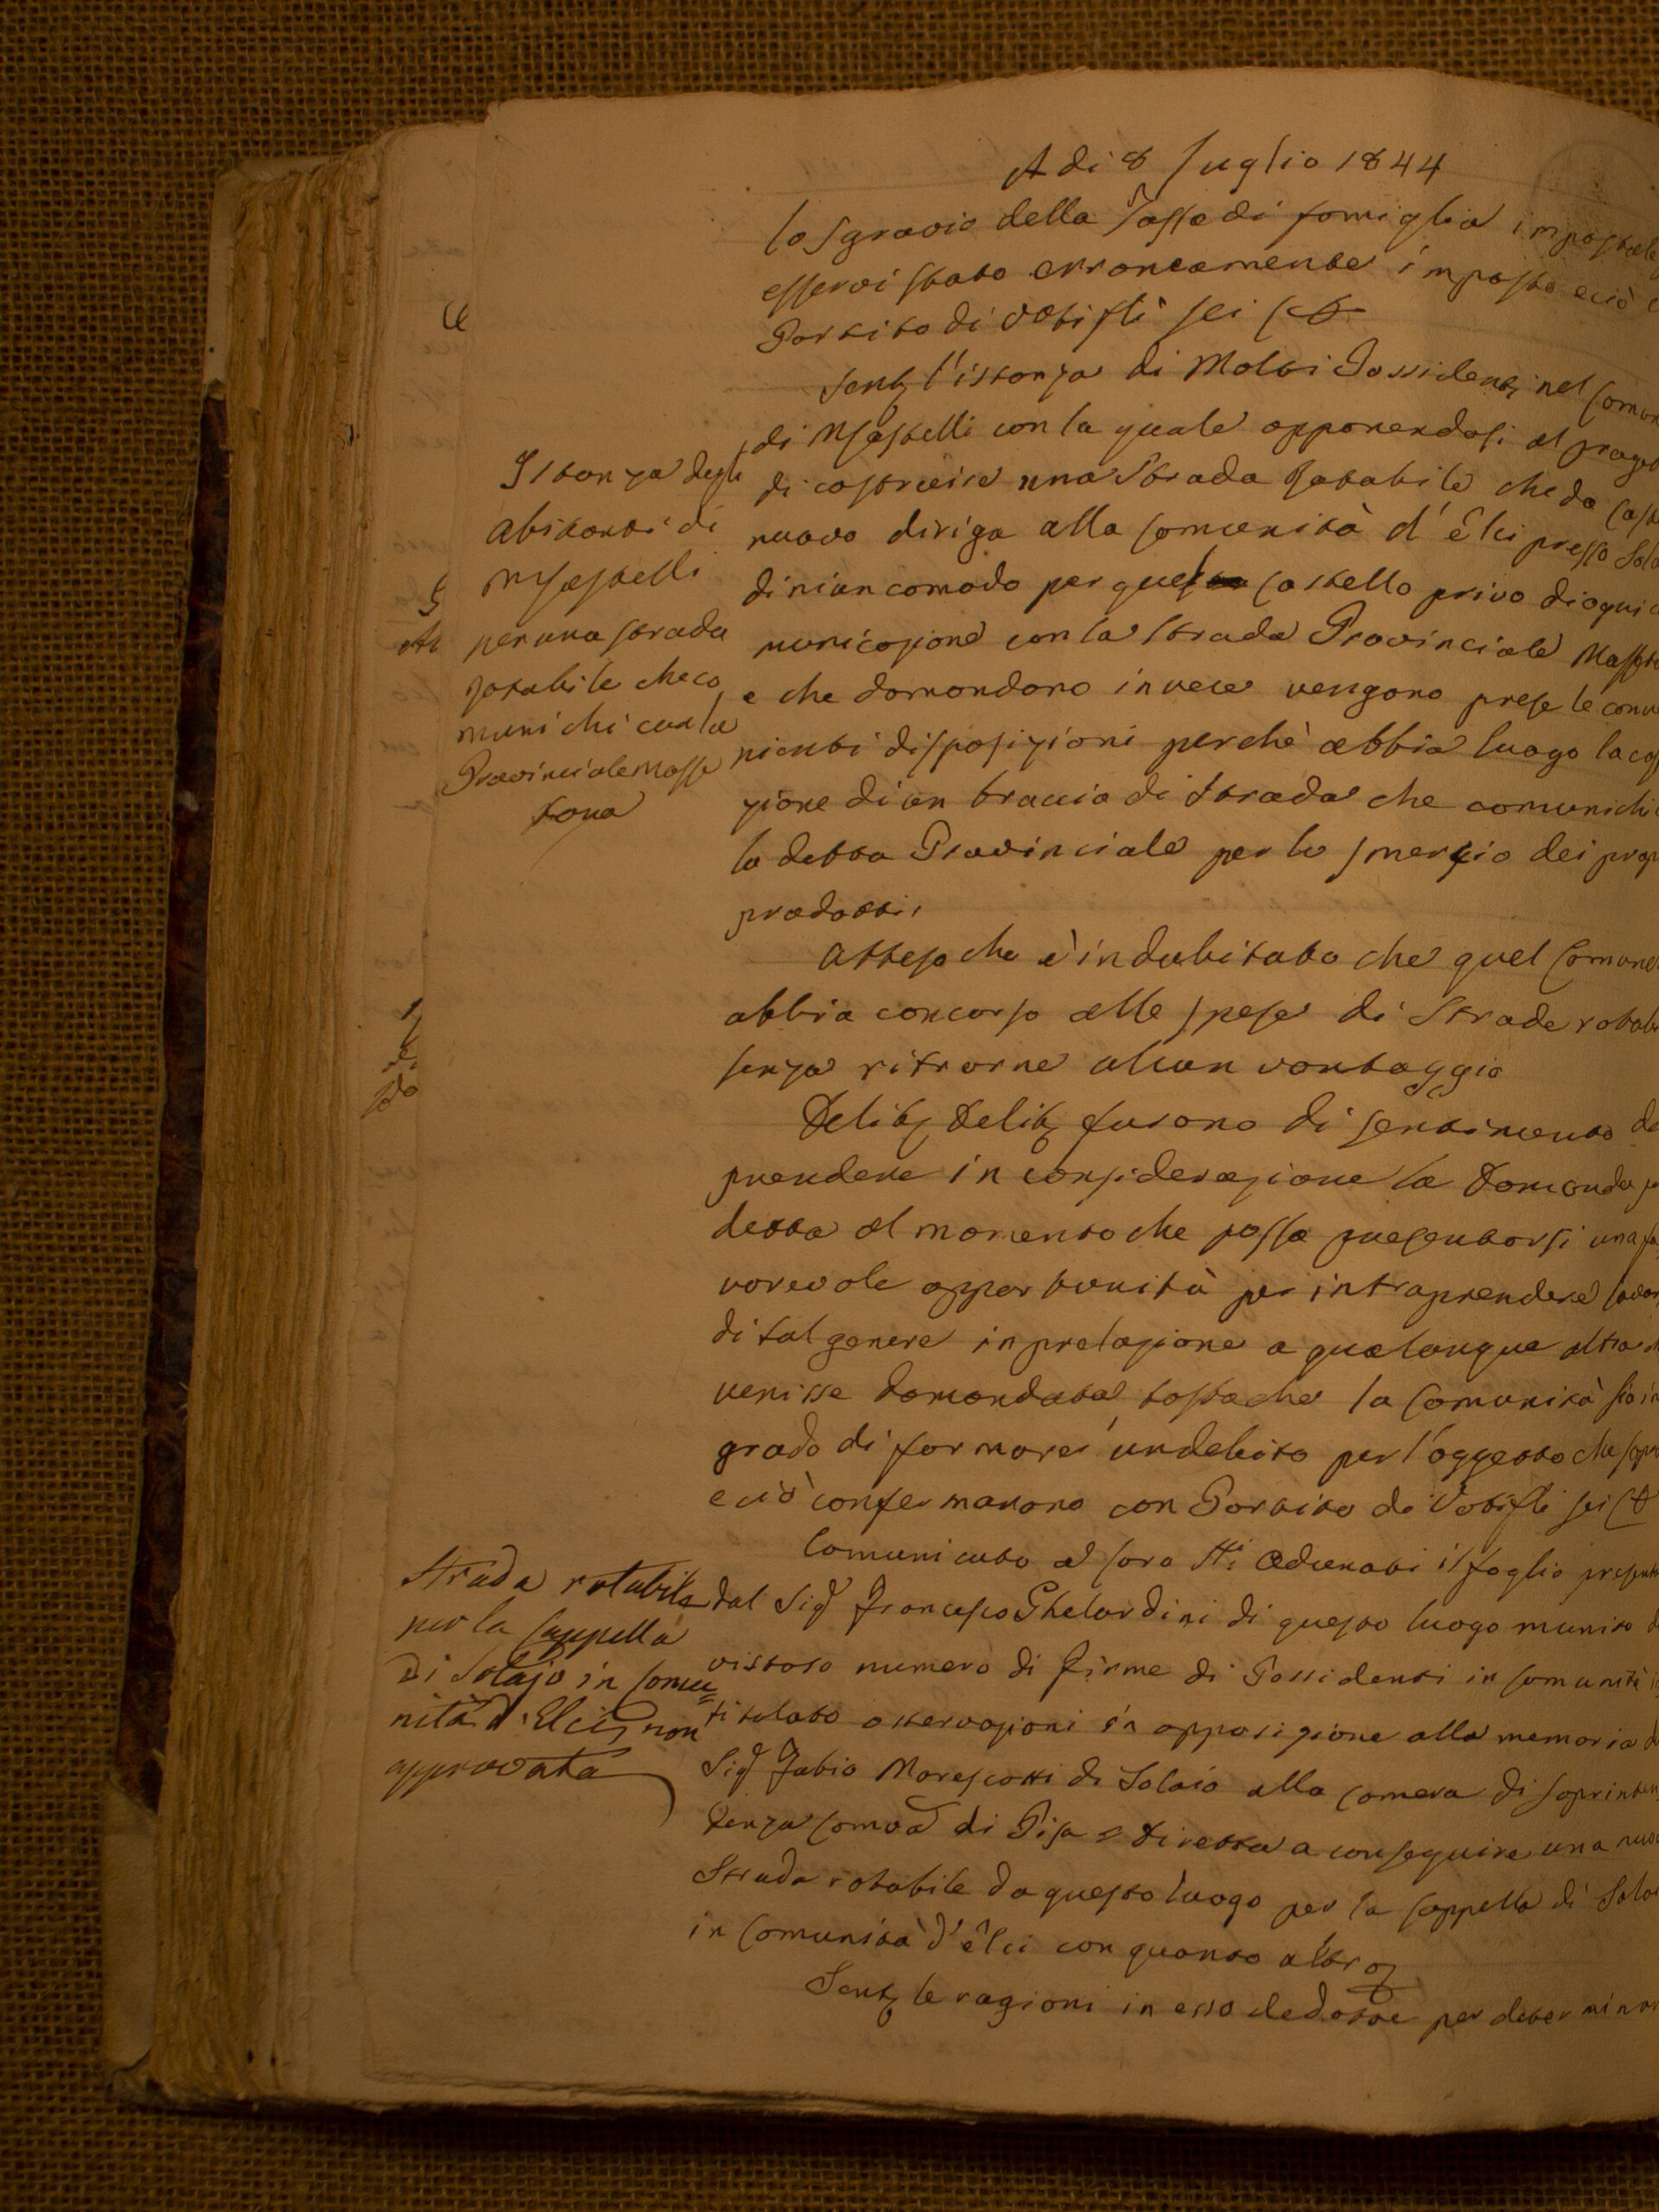 A di 8 Luglio 1844
lo Sgravio della Tassa di famiglia impostale
esservi stato erroneamente imposto e ciò
Partito di Voti sli sei
Sent. l'istanza di Molti Possidenti nel Comun
di Mse Castelli con la quale opponendosi al proget
di costruire una Strada Rotabile che da Cast
nuovo diriga alla Comunità d'Elci presso Sola
di niun comodo per quel Castello privo di ogni c
municazione con la Strada Provinciale Masset
e che domandano invece vengano prese le conve
nienti disposizioni perchè abbia luogo la cos
zione di un braccio di strada che comunichi
la detta Provinciale per lo smercio dei prop
prodotti,
Atteso che è indubitato che quel Comune
abbia concorso alle spese di Strade rotab
senza ritrarne alcun vantaggio
Delib. Delib. furono di sentimento de
prendere in considerazione la Domanda
detta al momento che possa presentarsi una fa
vorevole opportunità per intraprendere lavor
di tal genere in prelazione a qualunque altra
venisse domandata tosto che la Comunità sia in
grado di formare un debito per l'oggetto che sopr
e ciò confermarono con Partito di Voti sli sei
Comunicato al loro SSi Adunati il foglio present
dal Sigr Francesco Ghelardini di questo luogo munito d
vistoso numero di firme di Possidenti in Comunità i
titolato osservazioni in opposizione alla memoria d
Sigr Fabio Marescotti di Solaio alla Camera di Soprinten
denza Comva di Pisa e diretta a conseguire una nuov
Strada rotabile da questo luogo per la Cappella di Solai
in Comunità d'Elci con quanto altro
Sent. le ragioni in esso dedotte per determinar
Istanza degli
abitanti di
per una strada
rotabile che co
munichi con la
Provinciale Masse
tana
Strada rotabile
per la Cappella
di Solajo in Comu=
nità d'Elci, non
approvata